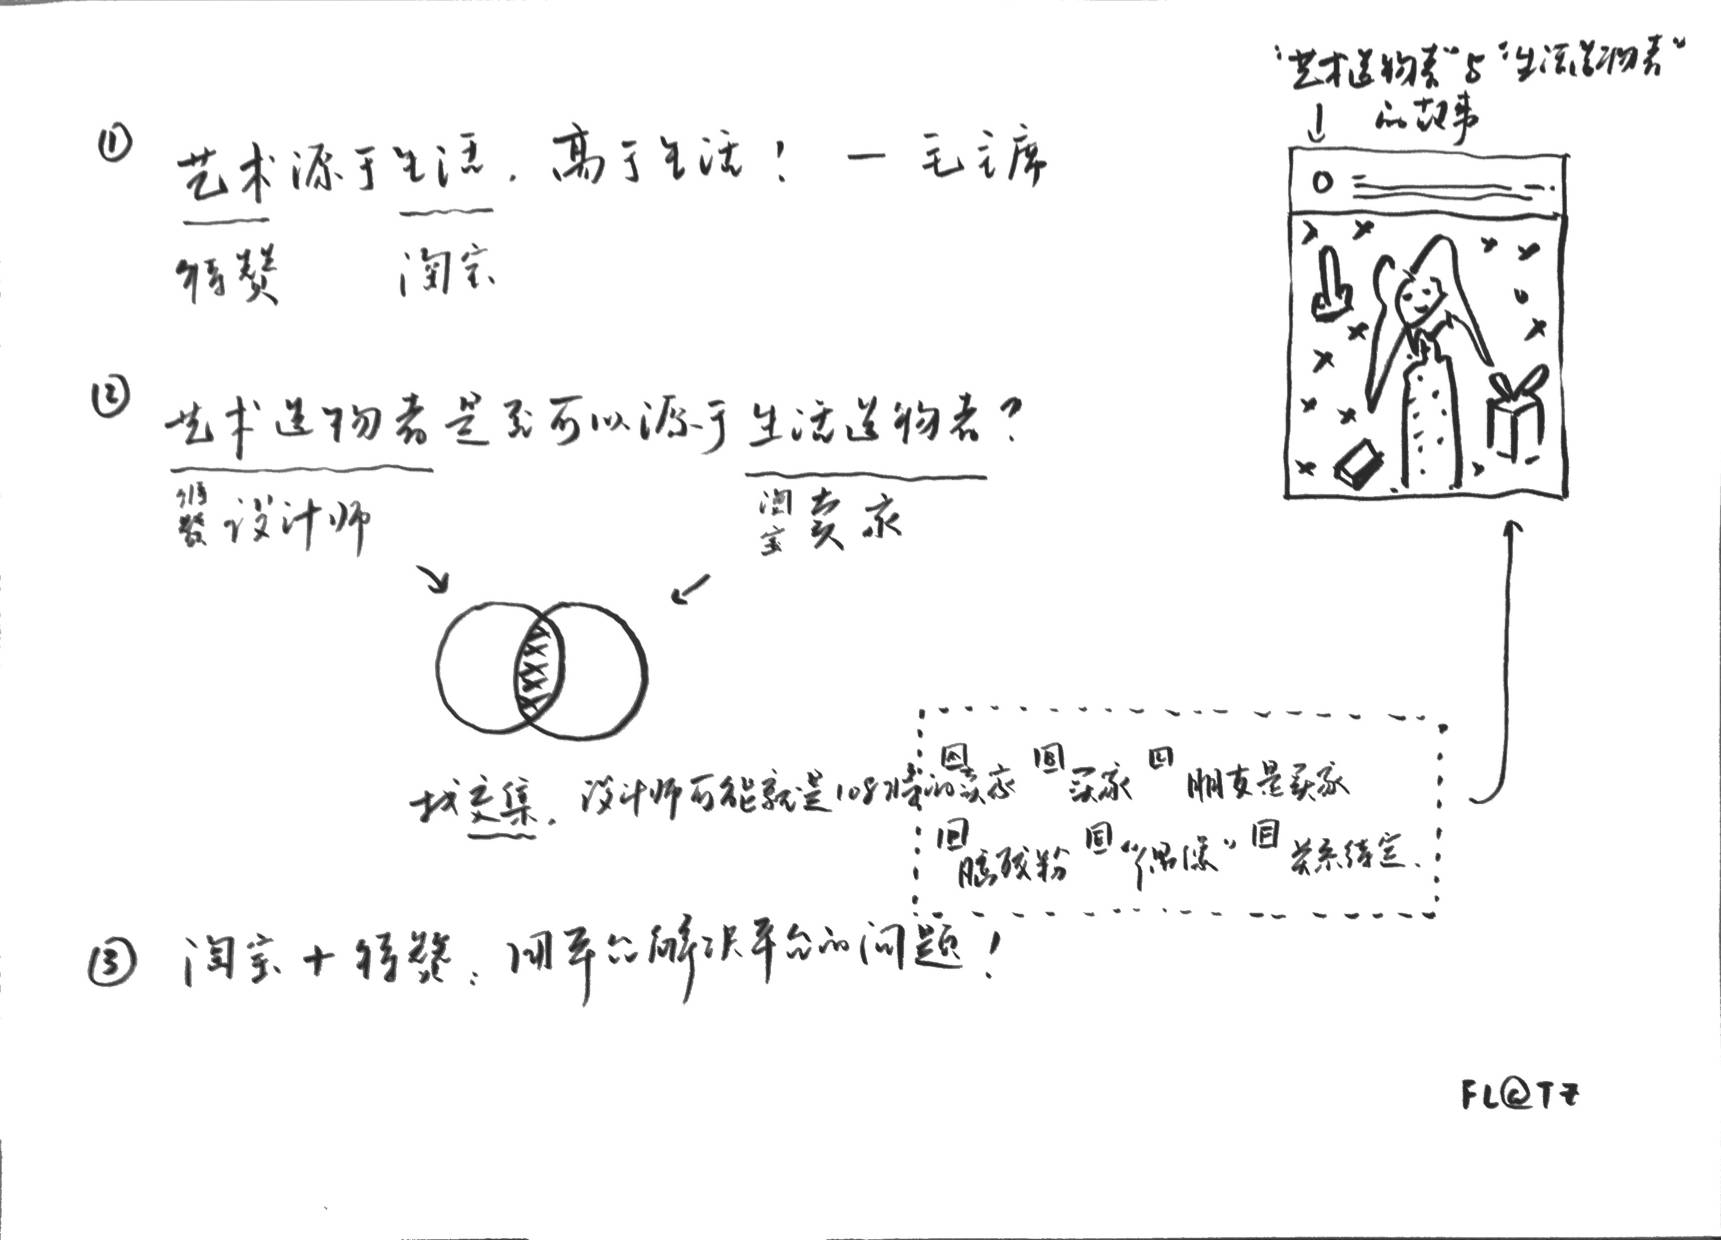 “艺术造物者”与“生活造物者”
的故事
① 艺术源于生活，高于生活！— 毛主席
特赞 淘宝
② 艺术造物者是否可以源于生活造物者？
特赞设计师 淘宝卖家
找交集，设计师可能就是108将的卖家 买家 朋友是卖家
脑残粉 “偶像” 关系待定.
③ 淘宝＋特赞：用平台解决平台的问题！
FL@TZ